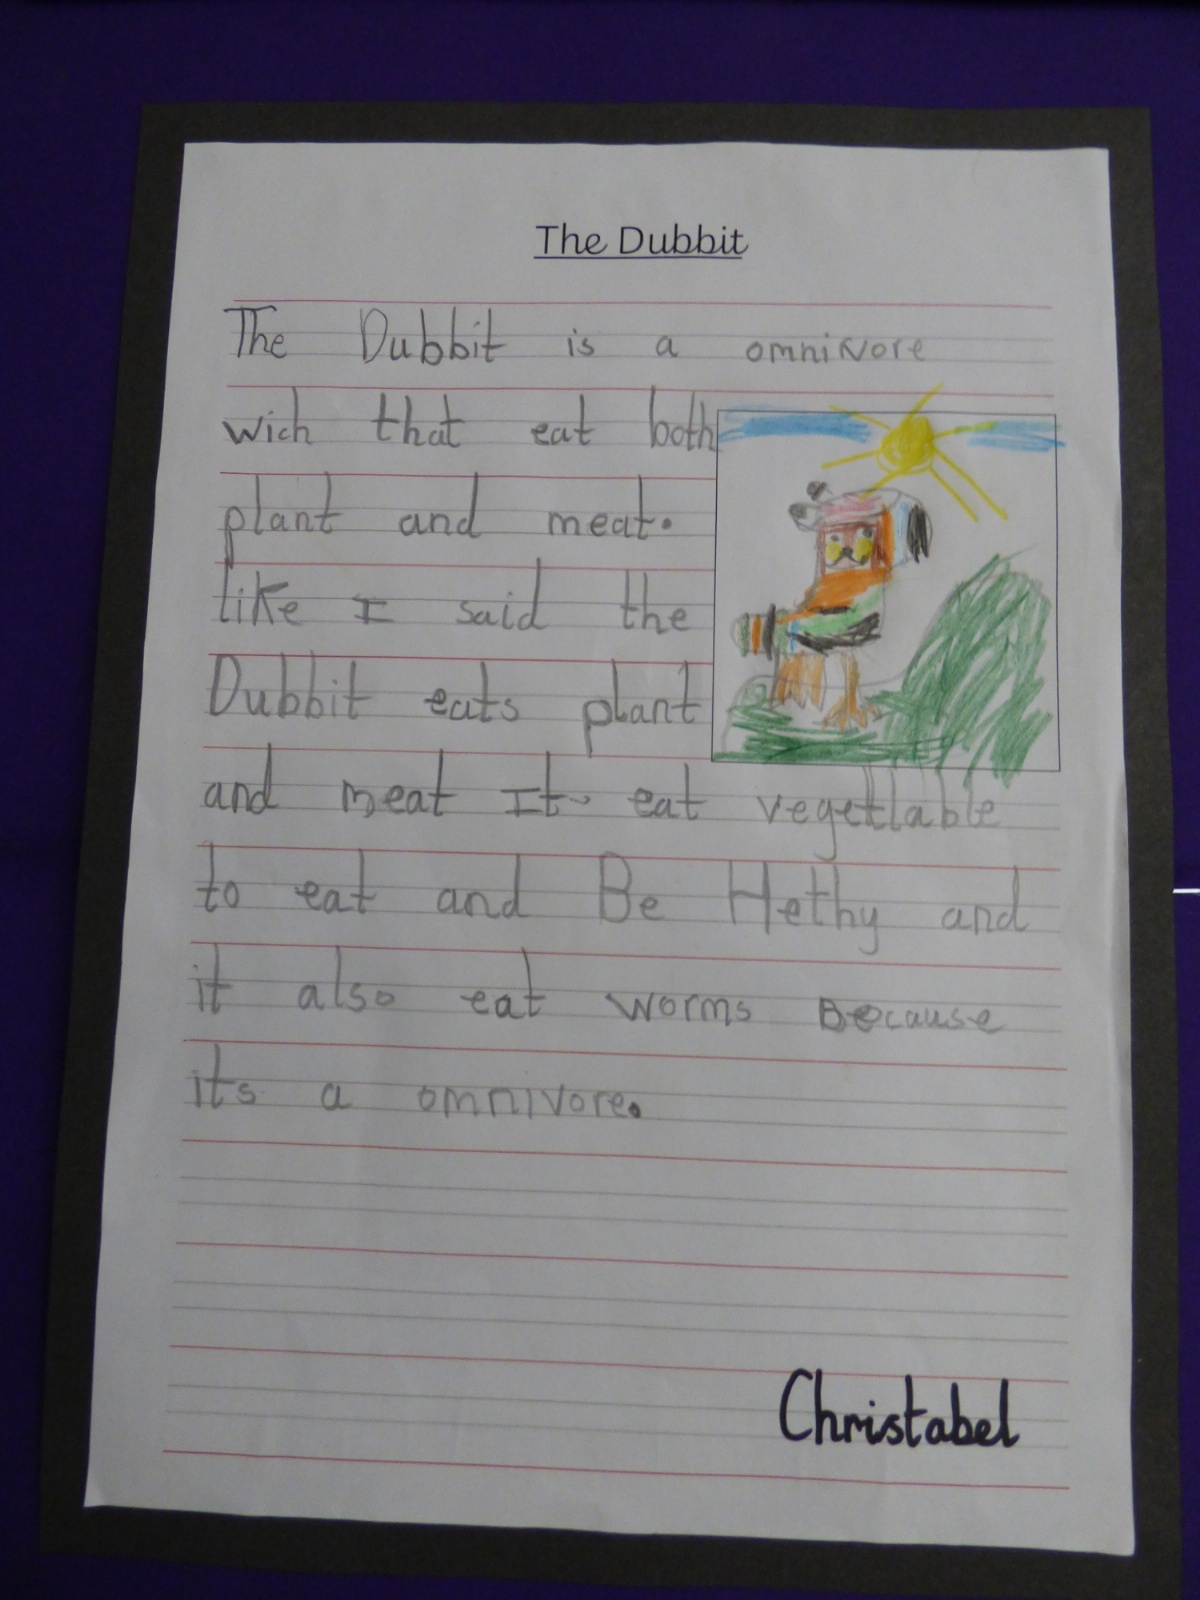 The Dubbit
The Dubbit is a omnivore
wich that eat both
plant and meat.
like I said the
Dubbit eats plant
and meat It eat vegetlable
to eat and Be Hethy and
it also eat worms Because
its a omnivore.
Christabel